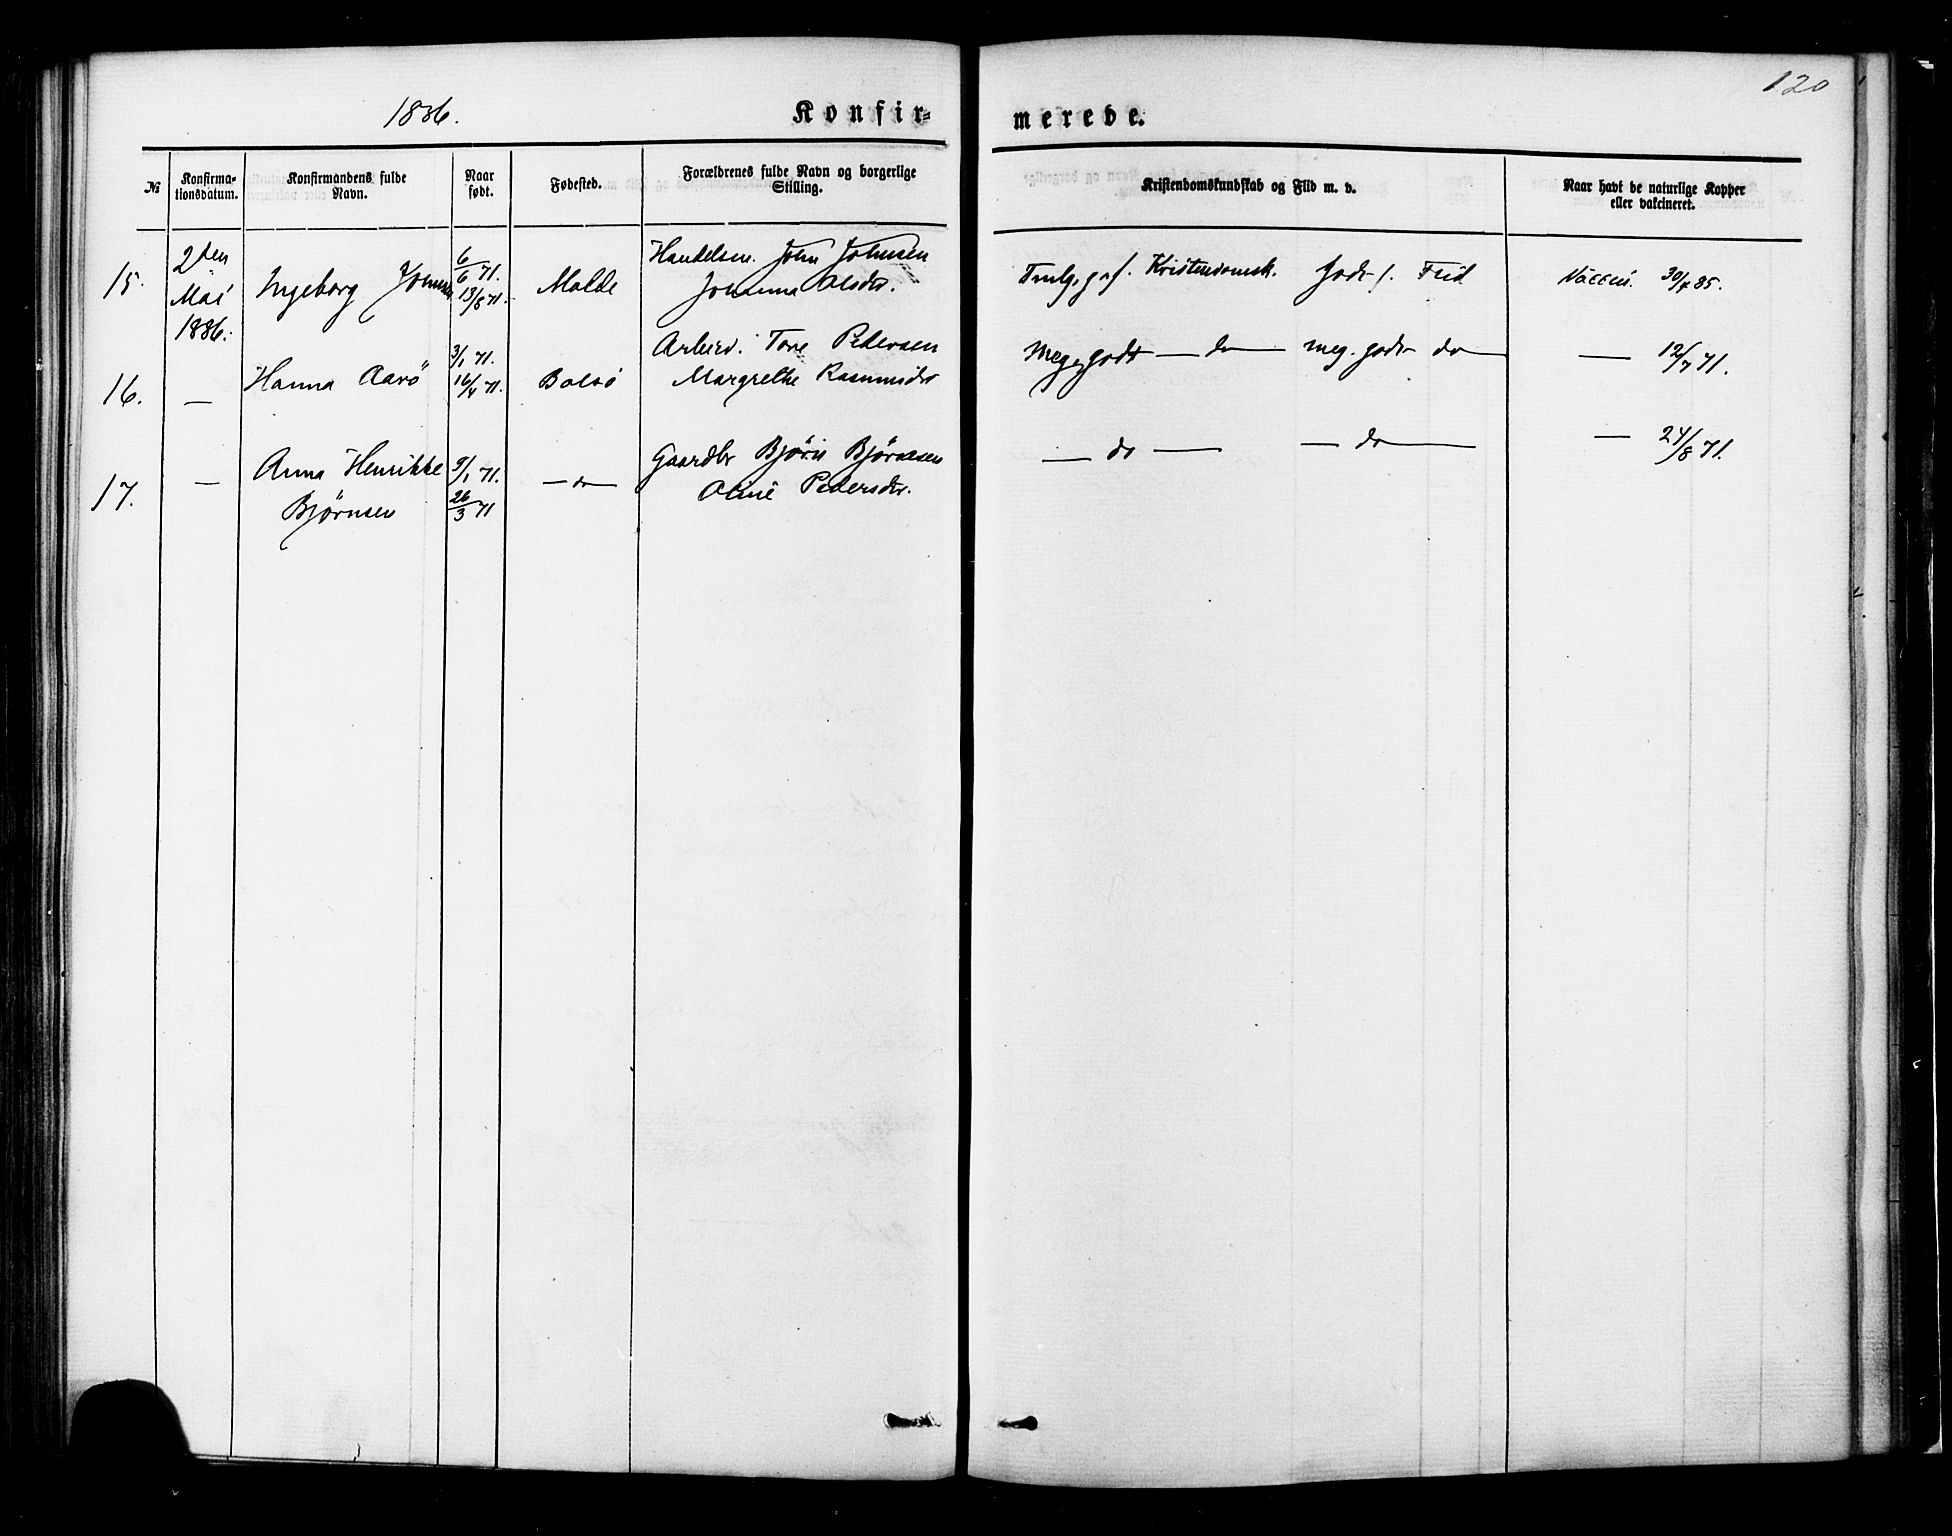 120
1886. Konfir=merede.
№ Konfirma-tionsdatum. Konfirmandens fulde Navn. Naar født. Fødested. Forældrenes fulde Navn og borgerlige Stilling. Kristendomskundskab og Flid m. v. Naar havt de naturlige Kopper eller vakcineret.
15. 2den Mai 1886. Ingeborg Johnsen 6/6 71. 13/8 71. Molde Handelsm. John Johnsen
Johanna Olsdr. Kristendomsk. godt Flid Vaccin. 30/4 85.
16. — Hanna Aarö 3/1 71. 16/4 71. Bolsö Arbeid. Tore Pedersen
Margrethe Rasmusdr Meg. godt — do — meg. godt do — — 12/7 71.
17. — Anna Henrikke Bjørnsen 9/1 71. 26/3 71 — do — Gaardbr Bjørn Bjørnsen
Oline Pedersdr. — do — — do — — 24/8 71.